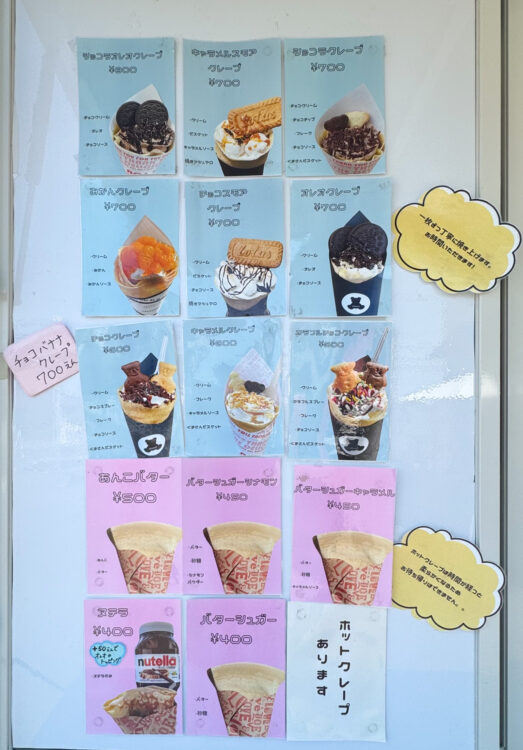 チョコラオレオクレープ
¥800
・チョコクリーム
・オレオ
・チョコソース
キャラメルスモア
クレープ
¥700
・クリーム
・ビスケット
・キャラメルソース
・焼きマシュマロ
Lotus
チョコラクレープ
¥700
・チョコクリーム
・チョコチップ
・フレーク
・チョコソース
・くまさんビスケット
みかんクレープ
¥700
・クリーム
・みかん
・みかんソース
チョコスモア
クレープ
¥700
・クリーム
・ビスケット
・チョコソース
・焼きマシュマロ
Lotus
オレオクレープ
¥700
・クリーム
・オレオ
・チョコソース
一枚ずつ丁寧に焼き上げます。
お時間いただきます!
チョコバナナ
クレープ。
700えん
チョコクレープ
¥600
・クリーム
・チョコスプレー
・フレーク
・チョコソース
・くまさんビスケット
キャラメルクレープ
¥600
・クリーム
・フレーク
・キャラメルソース
・くまさんビスケット
カラフルチョコクレープ
¥600
・クリーム
・カラフルスプレー
・フレーク
・チョコソース
・くまさんビスケット
あんこバター
¥500
・あんこ
・バター
バターシュガーシナモン
¥450
・バター
・砂糖
・シナモン
パウダー
バターシュガーキャラメル
¥450
・バター
・砂糖
・キャラメルソース
ホットクレープは時間が経つと
柔らかくなるため
お持ち帰りはできません。
ヌテラ
¥400
+50えんで
オレオの
トッピング
nutella
・ヌテラのみ
バターシュガー
¥400
・バター
・砂糖
ホットクレープ
あります